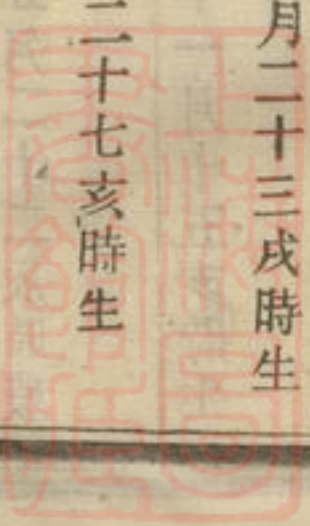 月二十三戌時生
二十七亥時生